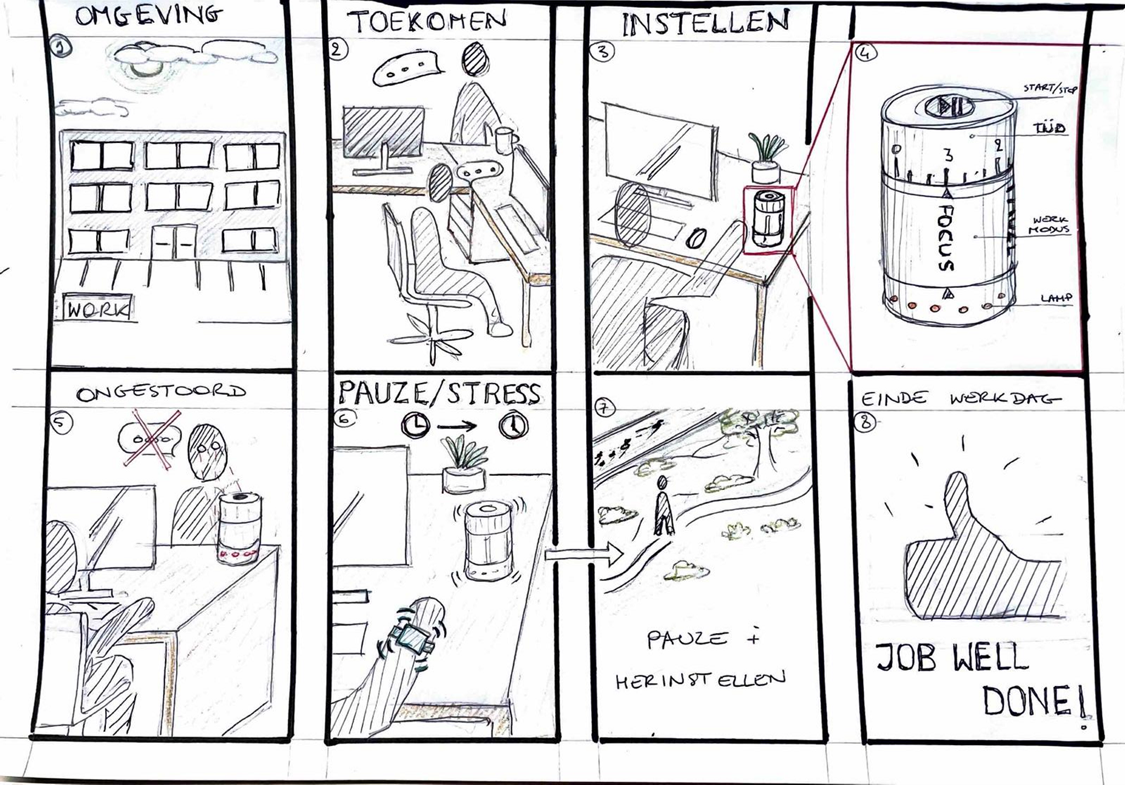 OMGEVING
1
WORK
TOEKOMEN
2
INSTELLEN
3
4
START/STOP
TIJD
0
3
2
FOCUS
WERK
MODUS
LAMP
ONGESTOORD
5
PAUZE/STRESS
6
7
PAUZE +
HERINSTELLEN
EINDE WERKDAG
8
JOB WELL
DONE!